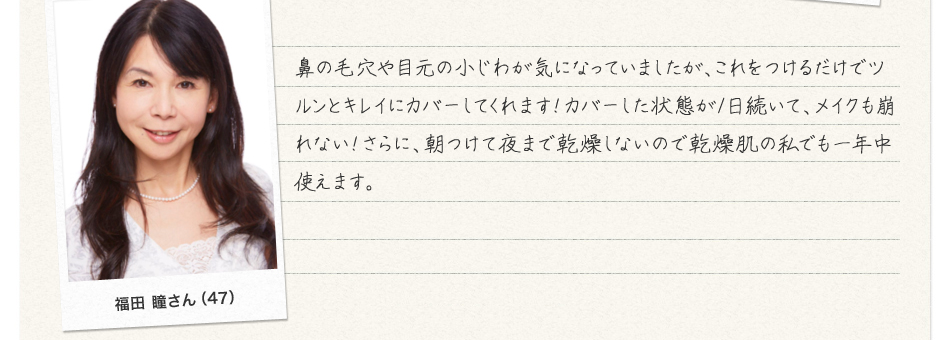 鼻の毛穴や目元の小じわが気になっていましたが、これをつけるだけでツ
ルンとキレイにカバーしてくれます！カバーした状態が1日続いて、メイクも崩
れない！さらに、朝つけて夜まで乾燥しないので乾燥肌の私でも一年中
使えます。
福田 瞳さん（47）